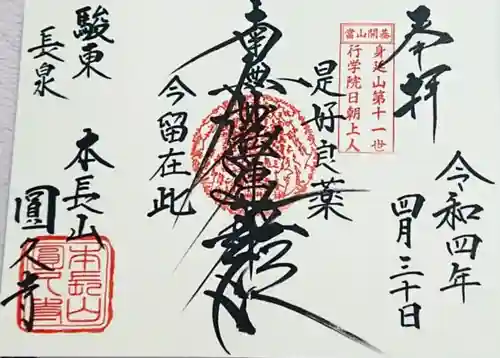 奉拝
令和四年
四月三十日
當山開基
身延山第十一世
行学院日朝上人
是好良薬
南無妙法蓮華経
今留在此
駿東
長泉
本長山
圓久寺